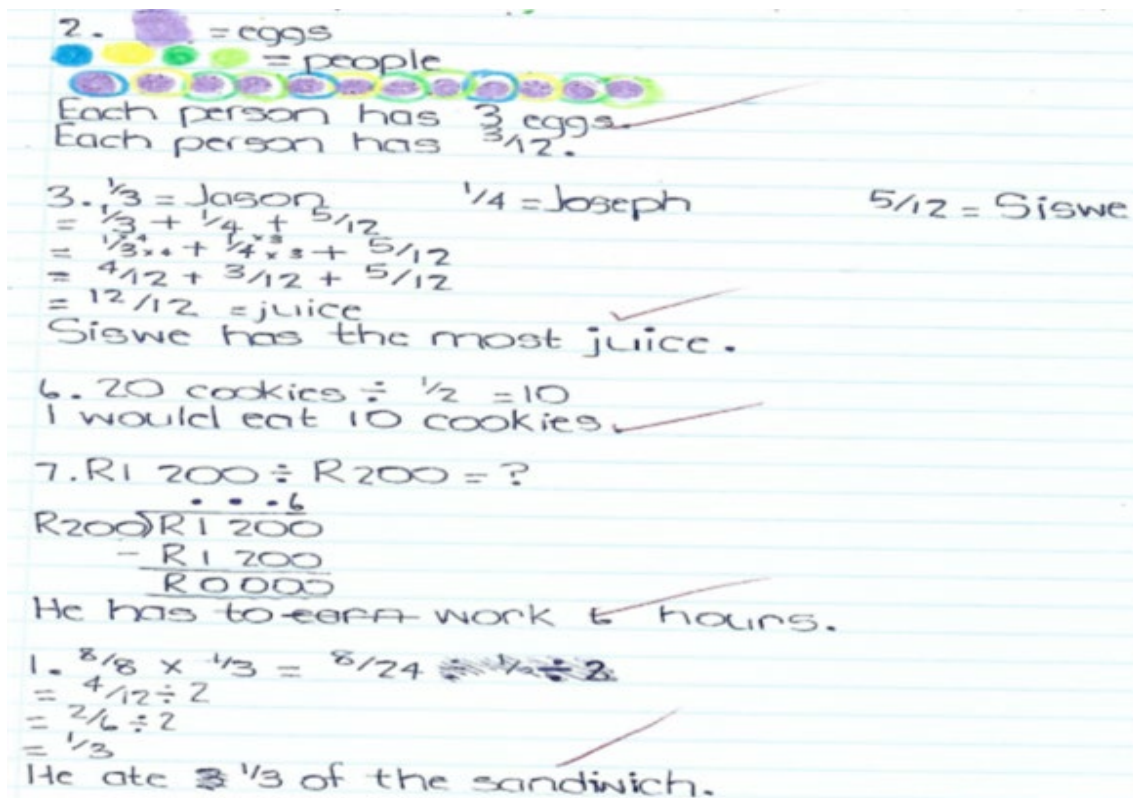 2. = eggs
= people
Each person has 3 eggs.
Each person has 3/12.
3. 1/3 = Jason 1/4 = Joseph 5/12 = Siswe
= 1/3 + 1/4 + 5/12
= 1/3 ×4 ×4 + 1/4 ×3 ×3 + 5/12
= 4/12 + 3/12 + 5/12
= 12/12 = juice
Siswe has the most juice.
6. 20 cookies ÷ 1/2 = 10
I would eat 10 cookies.
7. R1 200 ÷ R200 = ?
. . . 6
R200)R1 200
- R1 200
R0000
He has to earn work 6 hours.
1. 8/8 × 1/3 = 8/24
= 4/12 ÷ 2
= 2/6 ÷ 2
= 1/3
He ate 1/3 of the sandwich.